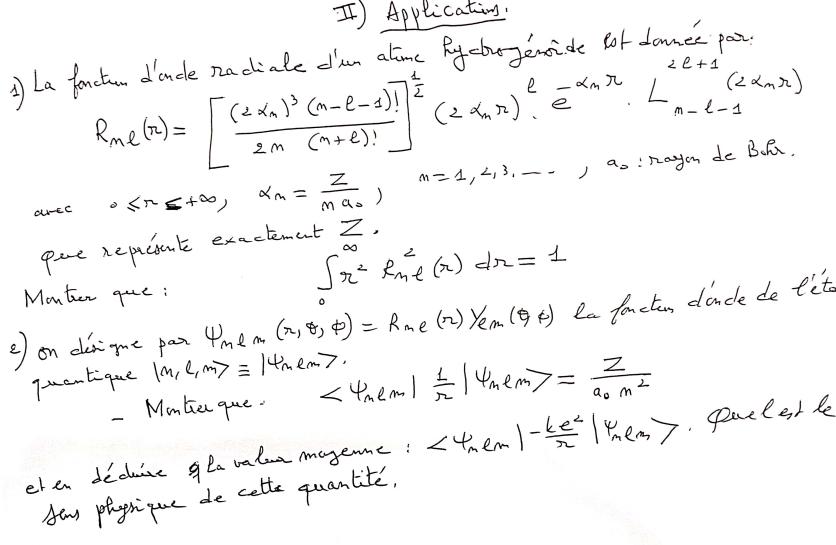 II) Application.
1) La fonction d'onde radiale d'un atome hydrogénoïde est donnée par:
Rnl(r) = [ (2αn)³ (n-l-1)! / 2n (n+l)! ]^(1/2) (2αn r)^l . e^(-αn r) . L_(n-l-1)^(2l+1) (2αn r)
avec 0 ≤ r ≤ +∞, αn = Z / n a₀ , n = 1, 2, 3, ... , a₀ : rayon de Bohr.
que représente exactement Z.
Montrer que : ∫₀^∞ r² R²nl (r) dr = 1
2) on désigne par Ψnlm (r, θ, φ) = Rnl (r) Ylm (θ, φ) la fonction d'onde de l'éta
quantique |n, l, m> ≡ |Ψnlm>.
- Montrer que. <Ψnlm| 1/r |Ψnlm> = Z / a₀ n²
et en déduire la valeur moyenne : <Ψnlm| -ke²/r |Ψnlm>. Quel est le
sens physique de cette quantité.